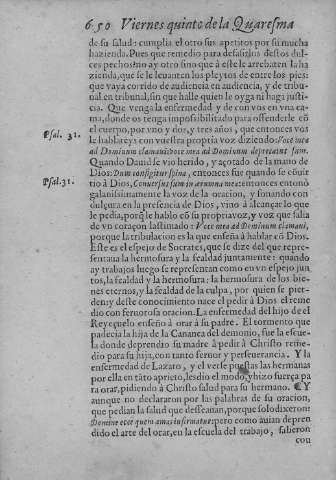 650 Viernes quinto de la Quaresma
de su salud: cumplia el otro sus apetitos por su mucha
hazienda. Pues que remedio para desasirlos destos dul-
ces pechos? no ay otro sino que à este le arrebaten la ha
zienda, que se le leuanten los pleytos de entre los pies:
que vaya corrido de audiencia en audiencia, y de tribu-
nal en tribunal, sin que halle quien le oyga ni haga justi-
cia. Que venga la enfermedad y de con vos en vna ca-
ma, donde os tenga imposibilitado para offenderle cõ
Psal. 31.
el cuerpo, por vno y dos, y tres años, que entonces vos
le hablareys con vuestra propria voz diziendo: Voce mea
ad Dominum clamaui: voce mea ad Dominum deprecatus sum.
Quando Dauid se vio herido, y açotado de la mano de
Psal. 31.
Dios: Dum configitur spina, entonces fue quando se cõuir
tiò à Dios, Conuersus sum in ærumna mea: entonces entonò
galanissimamente la voz de la oracion, y sonando con
dulçura en la presencia de Dios, vino à alcançar lo que
le pedia, porq̃ le hablò cõ su propria voz, y voz que salia
de vn coraçon lastimado: Voce mea ad Dominum clamaui,
porque la tribulacion es la que enseña à hablar cõ Dios.
Este es el espejo de Socrates, que se dize del que repre-
sentaua la hermosura y la fealdad juntamente: quando
ay trabajos luego se representan como en vn espejo jun
tos, la fealdad y la hermosura: la hermosura de los bie-
nes eternos, y la fealdad de la culpa, por quien se pier-
den: y deste conocimiento nace el pedir à Dios el reme
dio con feruorosa oracion. La enfermedad del hijo de el
Reyeçuelo enseño à orar à su padre. El tormento que
padecia la hija de la Cananea del demonio, fue la escue-
la donde deprendio su madre à pedir à Christo reme-
dio para su hija, con tanto feruor y perseuerancia. Y la
enfermedad de Lazaro, y el verse puestas las hermanas
por ella en tãto aprieto, les dio el modo, y hizo fuerça pa
ra orar, pidiendo à Christo salud para su hermano. Y
aunque no declararon por las palabras de su oracion,
que pedian la salud que desseauan, porque solo dixeron:
Domine ecce quem amas infirmatur: pero como auian depren
dido el arte del orar, en la escuela del trabajo, saberon
con